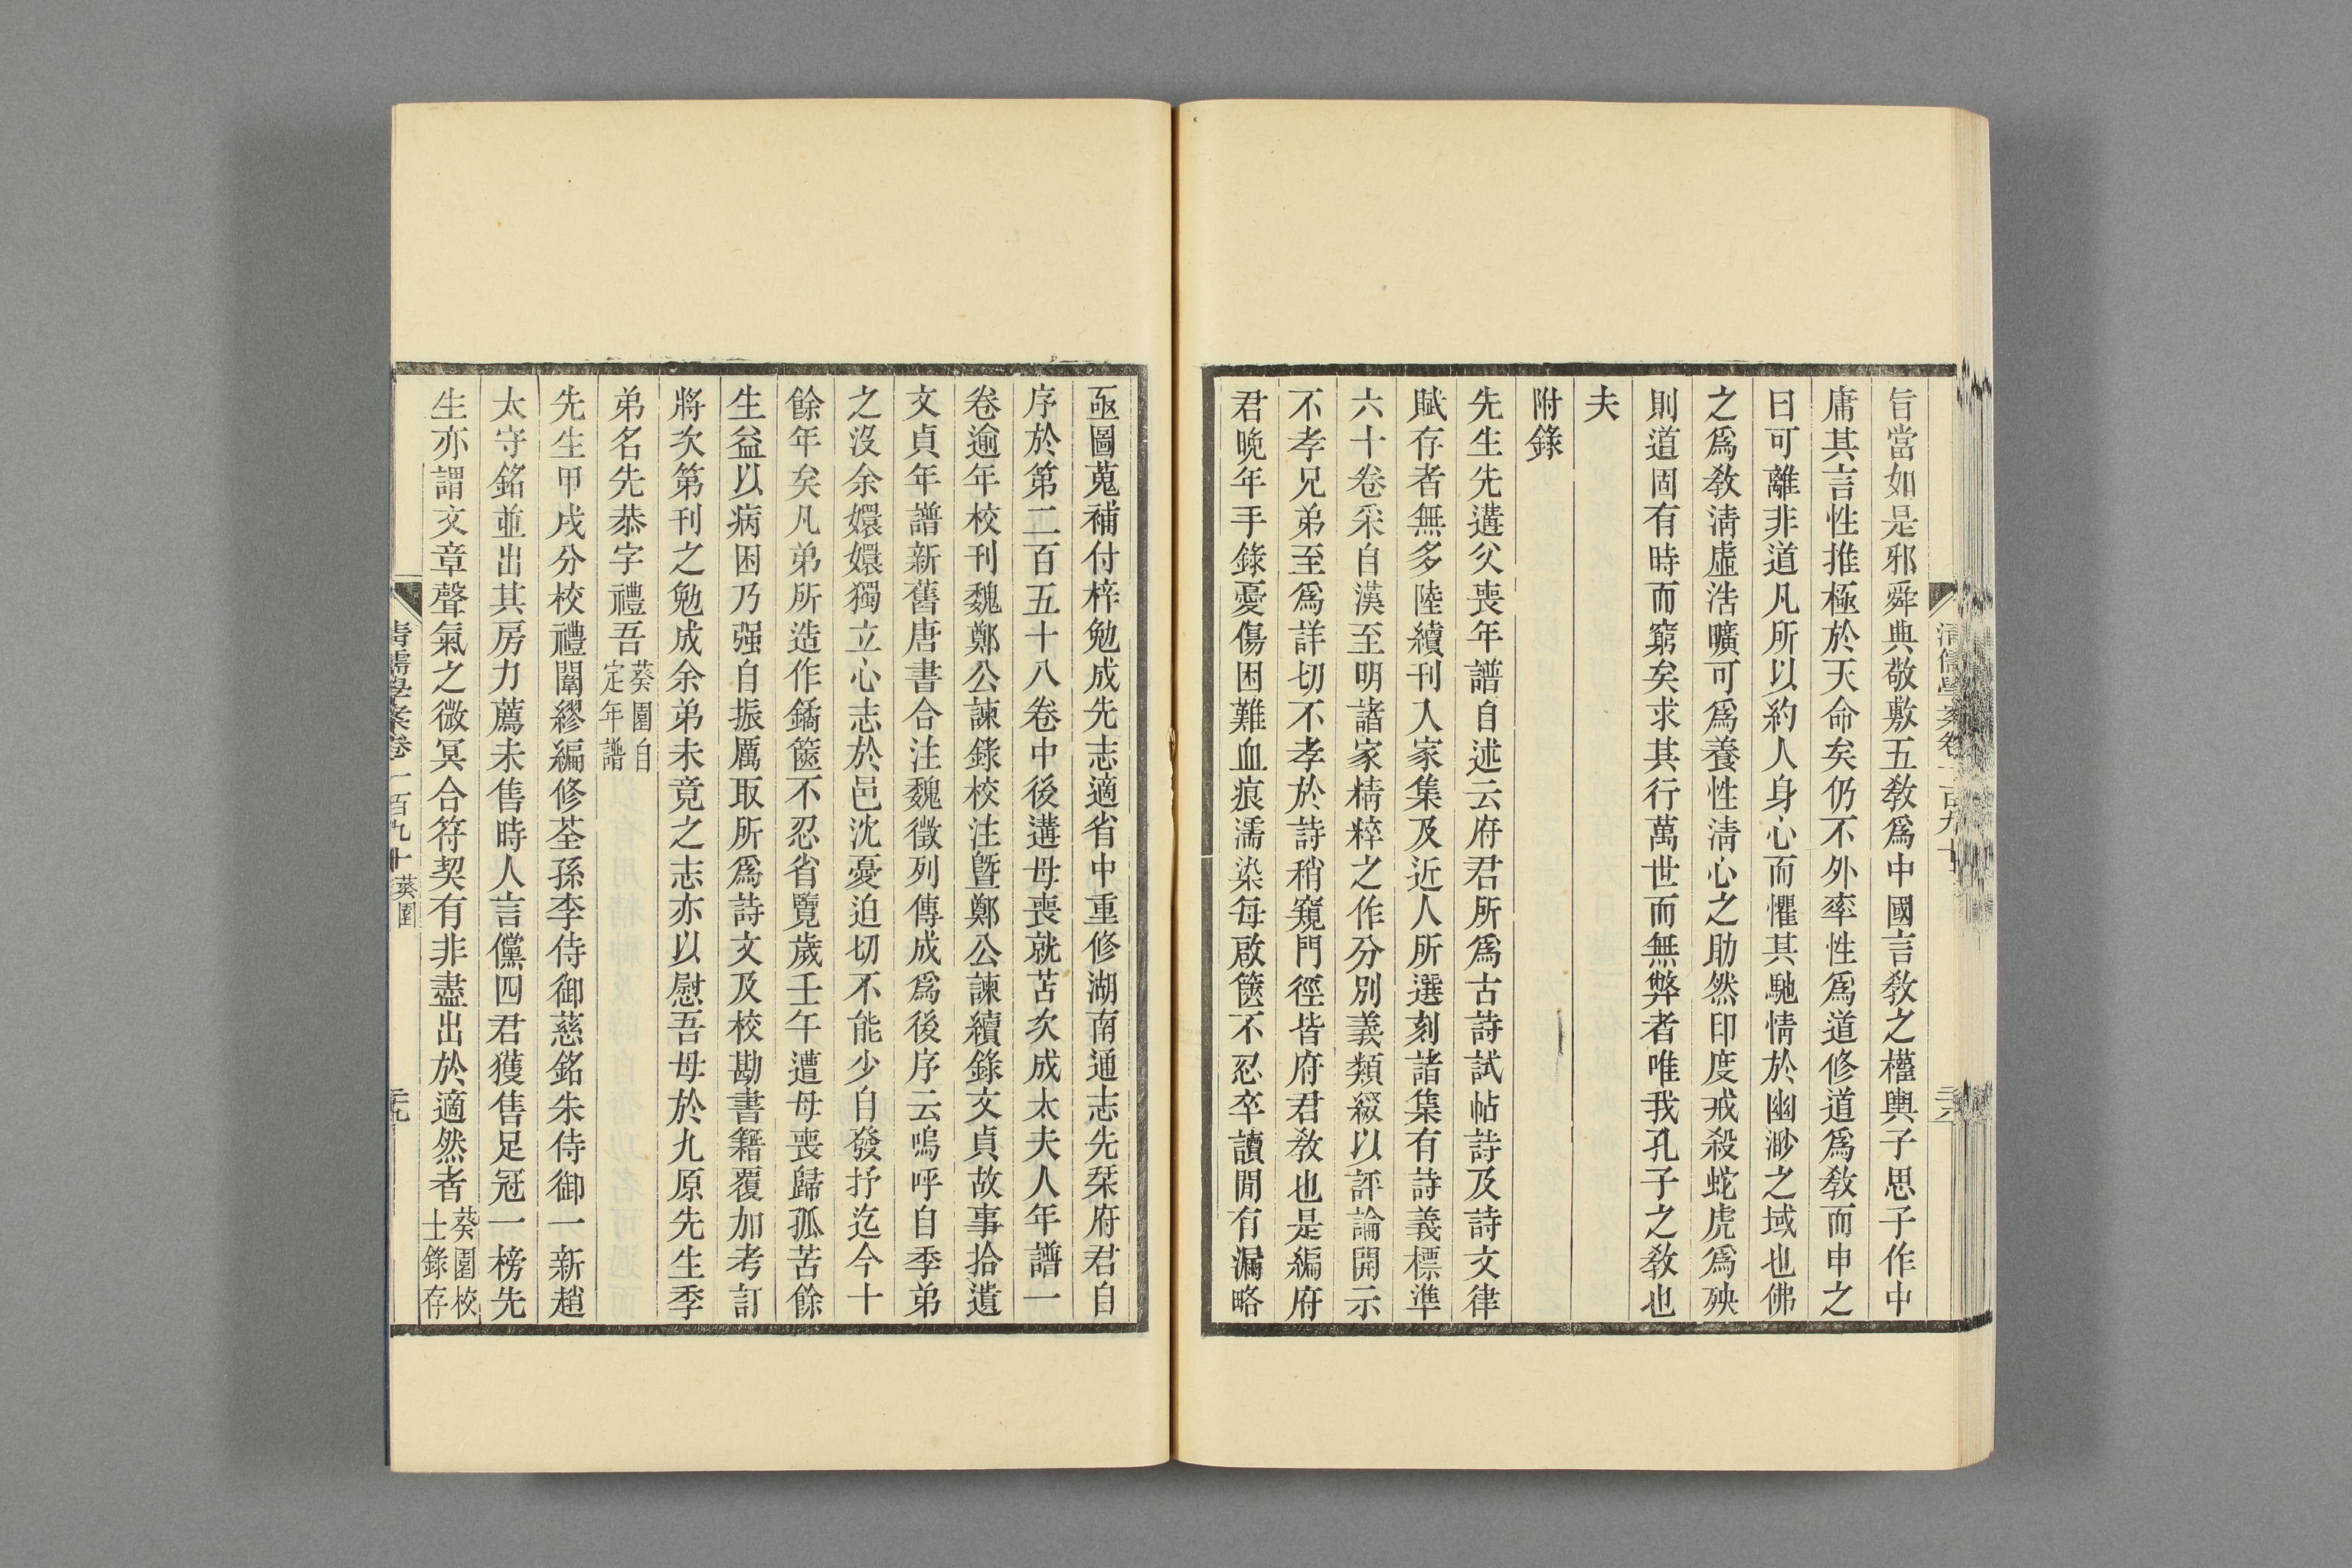 旨當如是邪舜典敬敷五敎爲中國言敎之權輿子思子作中
庸其言性推極於天命矣仍不外率性爲道修道爲敎而申之
曰可離非道凡所以約人身心而懼其馳情於幽渺之域也佛
之爲敎淸虛浩曠可爲養性淸心之助然印度戒殺蛇虎爲殃
則道固有時而窮矣求其行萬世而無弊者唯我孔子之敎也
夫
附錄
先生先遘父喪年譜自述云府君所爲古詩試帖詩及詩文律
賦存者無多陸續刊入家集及近人所選刻諸集有詩義標準
六十卷采自漢至明諸家精粹之作分別義類綴以評論開示
不孝兄弟至爲詳切不孝於詩稍窺門徑皆府君敎也是編府
君晚年手錄憂傷困難血痕濡染每啟篋不忍卒讀閒有漏略
亟圖蒐補付梓勉成先志適省中重修湖南通志先栞府君自
序於第二百五十八卷中後遘母喪就苫次成太夫人年譜一
卷逾年校刊魏鄭公諫錄校注曁鄭公諫續錄文貞故事拾遺
文貞年譜新舊唐書合注魏徵列傳成爲後序云嗚呼自季弟
之沒余嬛嬛獨立心志於邑沈憂迫切不能少自發抒迄今十
餘年矣凡弟所造作鐍篋不忍省覽歲壬午遭母喪歸孤苦餘
生益以病困乃强自振厲取所爲詩文及校勘書籍覆加考訂
將次第刊之勉成余弟未竟之志亦以慰吾母於九原先生季
弟名先恭字禮吾葵園自定年譜
先生甲戌分校禮闈繆編修荃孫李侍御慈銘朱侍御一新趙
太守銘並出其房力薦未售時人言儻四君獲售足冠一榜先
生亦謂文章聲氣之微冥合符契有非盡出於適然者葵園校士錄存
清儒學案卷一百九十 葵園